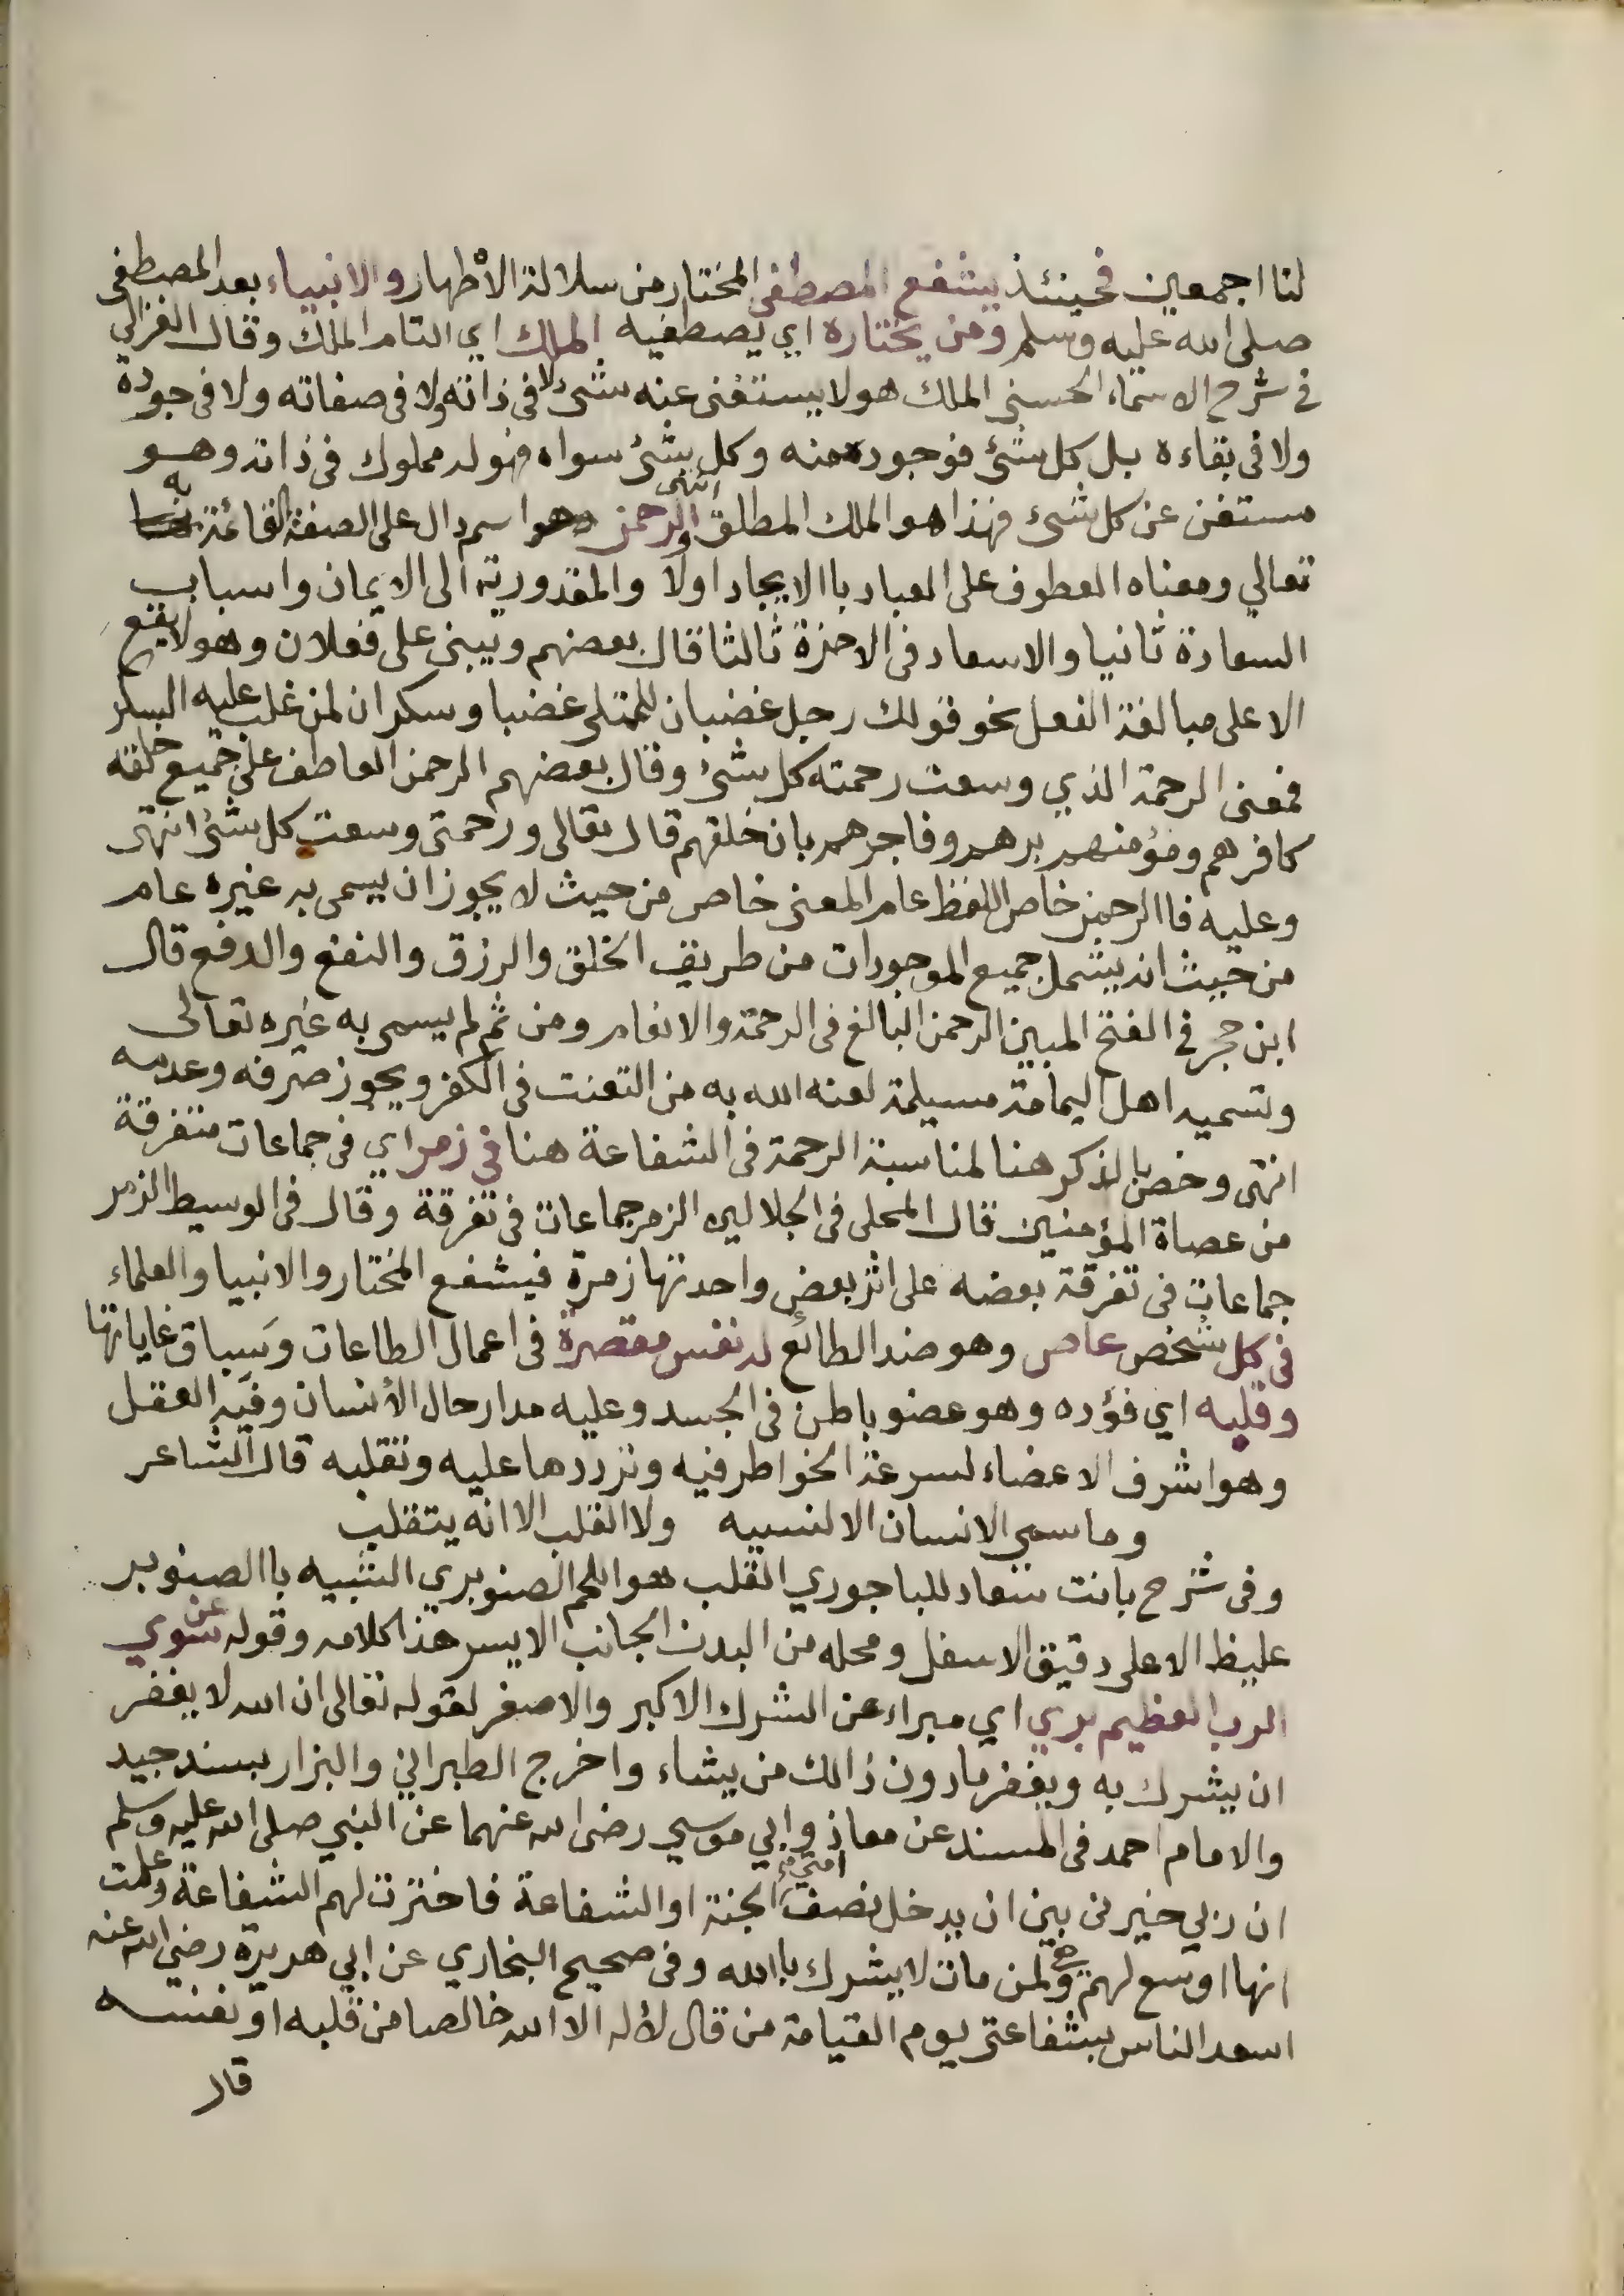 لنا اجمعين فحينئذ يشفع المصطفى المختار من سلالة الأطهار والانبياء بعد المصطفى
صلى الله عليه وسلم ومن يختاره اي يصطفيه الملك اي التام الملك وقال الغزالي
في شرح الاسماء الحسنى الملك هو لا يستغنى عنه شئ لا في ذاته ولا في صفاته ولا في جوده
ولا في بقاءه بل كل شئ فوجوده منه وكل شئ سواه فهو له مملوك في ذاته وهو
مستغن عن كل شئ فهذا هو الملك المطلق انتهى والرحمن وهو اسم دال على الصفة القائمة به
تعالي ومعناه العطوف على العباد باالايجاد اولا والمقدورية الى الايمان واسباب
السعادة ثانيا والاسعاد في الاخرة ثالثا قال بعضهم ويبنى على فعلان وهو لا يقع
الا على مبالغة الفعل نحو قولك رجل غضبان للممتلي غضبا وسكران لمن غلب عليه السكر
فمعنى الرحمة الذي وسعت رحمته كل شئ وقال بعضهم الرحمن العاطف على جميع خلقه
كافرهم ومؤمنهم برهم وفاجرهم بان خلقهم قال تعالى ورحمتى وسعت كل شئ انتهى
وعليه فاالرحمن خاص اللفظ عام المعنى خاص من حيث لا يجوز ان يسمى به غيره عام
من حيث انه يشمل جميع الموجودات من طريق الخلق والرزق والنفع والدفع قال
ابن حجر في الفتح المبين الرحمن البالغ في الرحمة والانعام ومن ثم لم يسمى به غيره تعالى
وتسميه اهل اليمامة مسيلمة لعنه الله به من التعنت في الكفر ويجوز صرفه وعدمه
انتهى وخص بالذكر هنا لمناسبة الرحمة في الشفاعة هنا في زمر اي في جماعات متفرقة
من عصاة المؤمنين قال المحلى في الجلالين الزمر جماعات في تفرقة وقال في الوسيط الزمر
جماعات في تفرقة بعضه على اثر بعض واحدتها زمرة فيشفع المختار والانبيا والعلماء
في كل شخص عاص وهو ضد الطائع له نفس مقصرة في اعمال الطاعات وسباق غاياتها
وقلبه اي فؤده وهو عضو باطن في الجسد وعليه مدار حال الأنسان وفيه العقل
وهو اشرف الاعضاء لسرعة الخواطر فيه وترددها عليه وتقلبه قال الشاعر
وما سمي الانسان الا لنسيه ولا القلب الا انه يتقلب
وفى شرح بانت سعاد للباجوري القلب هو اللحم الصنوبري الشبيه باالصنوبر
غليظ الاعلى دقيق الاسفل ومحله من البدن الجانب الايسر هذا كلامه وقوله عن سوي
الرب العظيم بري اي مبراء عن الشرك الاكبر والاصغر لقوله تعالى ان الله لا يغفر
ان يشرك به ويغفر مادون ذالك من يشاء واخرج الطبراني والبزار بسند جيد
والامام احمد في المسند عن معاذ وابي موسي رضى الله عنهما عن النبي صلى الله عليه وسلم
ان ربي خيرنى بين ان يدخل نصف امتي الجنة او الشفاعة فاخترت لهم الشفاعة وعلمت
انها اوسع لهم وهي لمن مات لا يشرك باالله وفي صحيح البخاري عن ابي هريرة رضى الله عنه
اسعد الناس بشفاعتى يوم القيامة من قال لا اله الا الله خالصا من قلبه او نفسه
قال